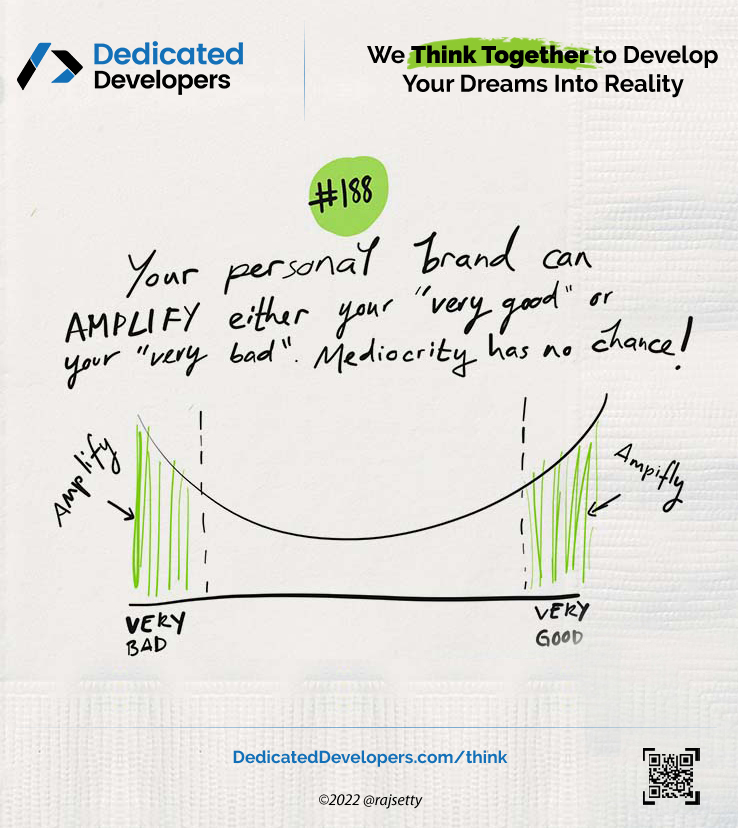 Dedicated
Developers
We Think Together to Develop
Your Dreams Into Reality
#188
Your personal brand can
AMPLIFY either your "very good" or
your "very bad". Mediocrity has no chance!
Amplify
Ampifly
VERY
BAD
VERY
GOOD
DedicatedDevelopers.com/think
©2022 @rajsetty